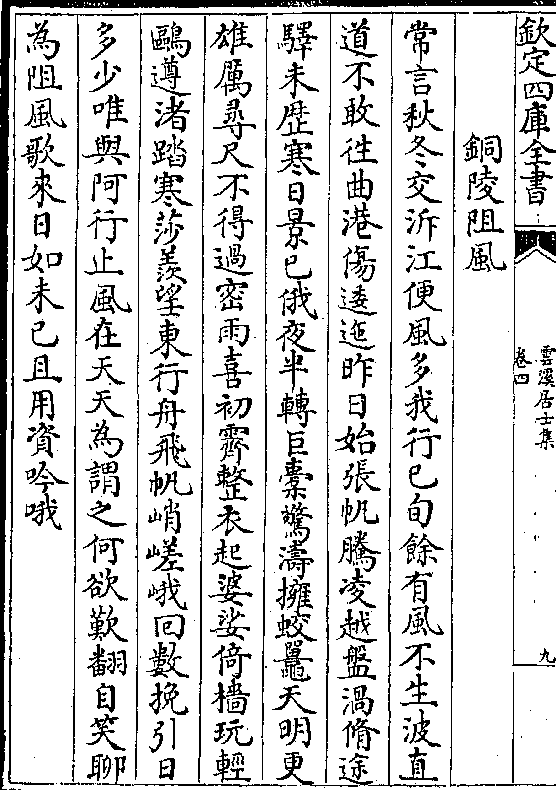 欽定四庫全書
雲溪居士集
卷四
九
銅陵阻風
常言秋冬交泝江便風多我行已旬餘有風不生波直
道不敢徃曲港傷逶迤昨日始張帆騰凌越盤渦脩途
驛未歴寒日景已俄夜半轉巨橐驚濤擁蛟鼉天明更
雄厲尋尺不得過宻雨喜初霽整衣起婆娑倚檣玩輕
鷗遵渚踏寒莎羨望東行舟飛帆峭嵯峨回數挽引日
多少唯與阿行止風在天天為謂之何欲歎翻自笑聊
為阻風歌來日如未已且用資吟哦